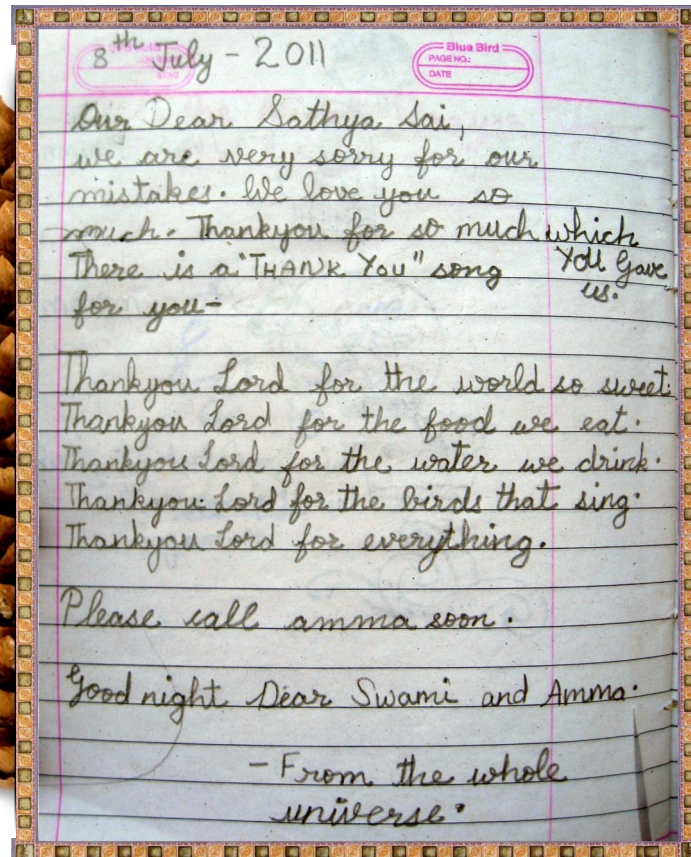 8th July - 2011
Blue Bird
PAGE NO.:
DATE
Our Dear Sathya Sai,
we are very sorry for our
mistakes. We love you so
much. Thankyou for so much which
There is a "THANK YOU" song You Gave
for you- us.
Thankyou Lord for the world so sweet.
Thankyou Lord for the food we eat.
Thankyou Lord for the water we drink.
Thankyou Lord for the birds that sing.
Thankyou Lord for everything.
Please call amma soon.
Good night Dear Swami and Amma.
- From the whole
universe.